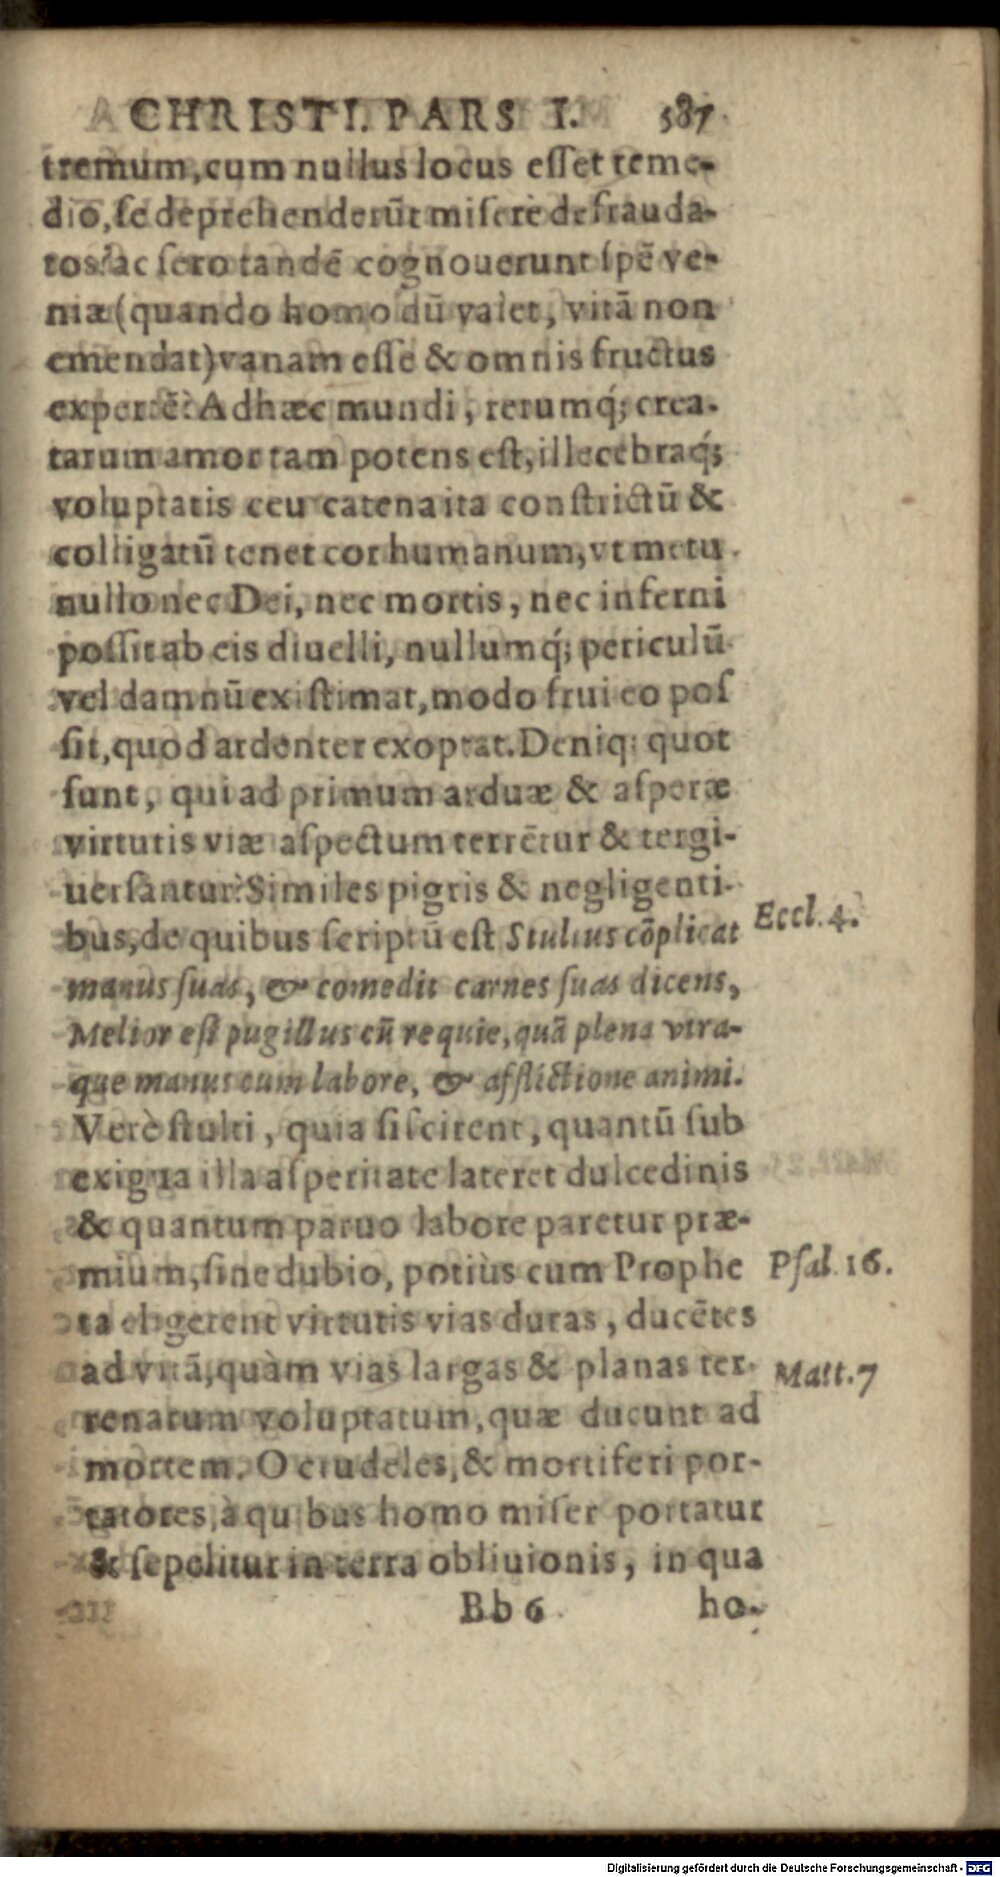 CHRISTI. PARS I. 587
tremum, cum nullus locus eſſet reme-
dio, ſe deprehenderūt miſerè defrauda-
tos: ac ſero tandē cognouerunt ſpē ve-
niæ (quando homo dū valet, vitā non
emendat) vanam eſſe & omnis fructus
expertē: Ad hæc mundi, rerumq́; crea-
tarum amor tam potens eſt, illecebraq́;
voluptatis ceu catena ita conſtrictū &
colligatū tenet cor humanum, vt metu
nullo nec Dei, nec mortis, nec inferni
poſſit ab eis diuelli, nullumq́; periculū
vel damnū exiſtimat, modo frui eo poſ
ſit, quod ardenter exoptat. Deniq; quot
ſunt, qui ad primum arduæ & aſperæ
virtutis viæ aſpectum terrētur & tergi-
uerſantur? Similes pigris & negligenti-
bus, de quibus ſcriptū eſt Stultus cōplicat
Eccl. 4.
manus ſuas, & comedit carnes ſuas dicens,
Melior eſt pugillus cū requie, quā plena vtra-
que manus cum labore, & afflictione animi.
Verè ſtulti, quia ſi ſcirent, quantū ſub
exigua illa aſperitate lateret dulcedinis
& quantum paruo labore paretur præ-
mium, ſine dubio, potiùs cum Prophe
Pſal. 16.
ta eligerent virtutis vias duras, ducētes
ad vitā, quàm vias largas & planas ter-
Matt. 7
renarum voluptatum, quæ ducunt ad
mortem. O crudeles, & mortiferi por-
tatores, à quibus homo miſer portatur
& ſepelitur in terra obliuionis, in qua
Bb 6 ho-
Digitalisierung gefördert durch die Deutsche Forschungsgemeinschaft - DFG